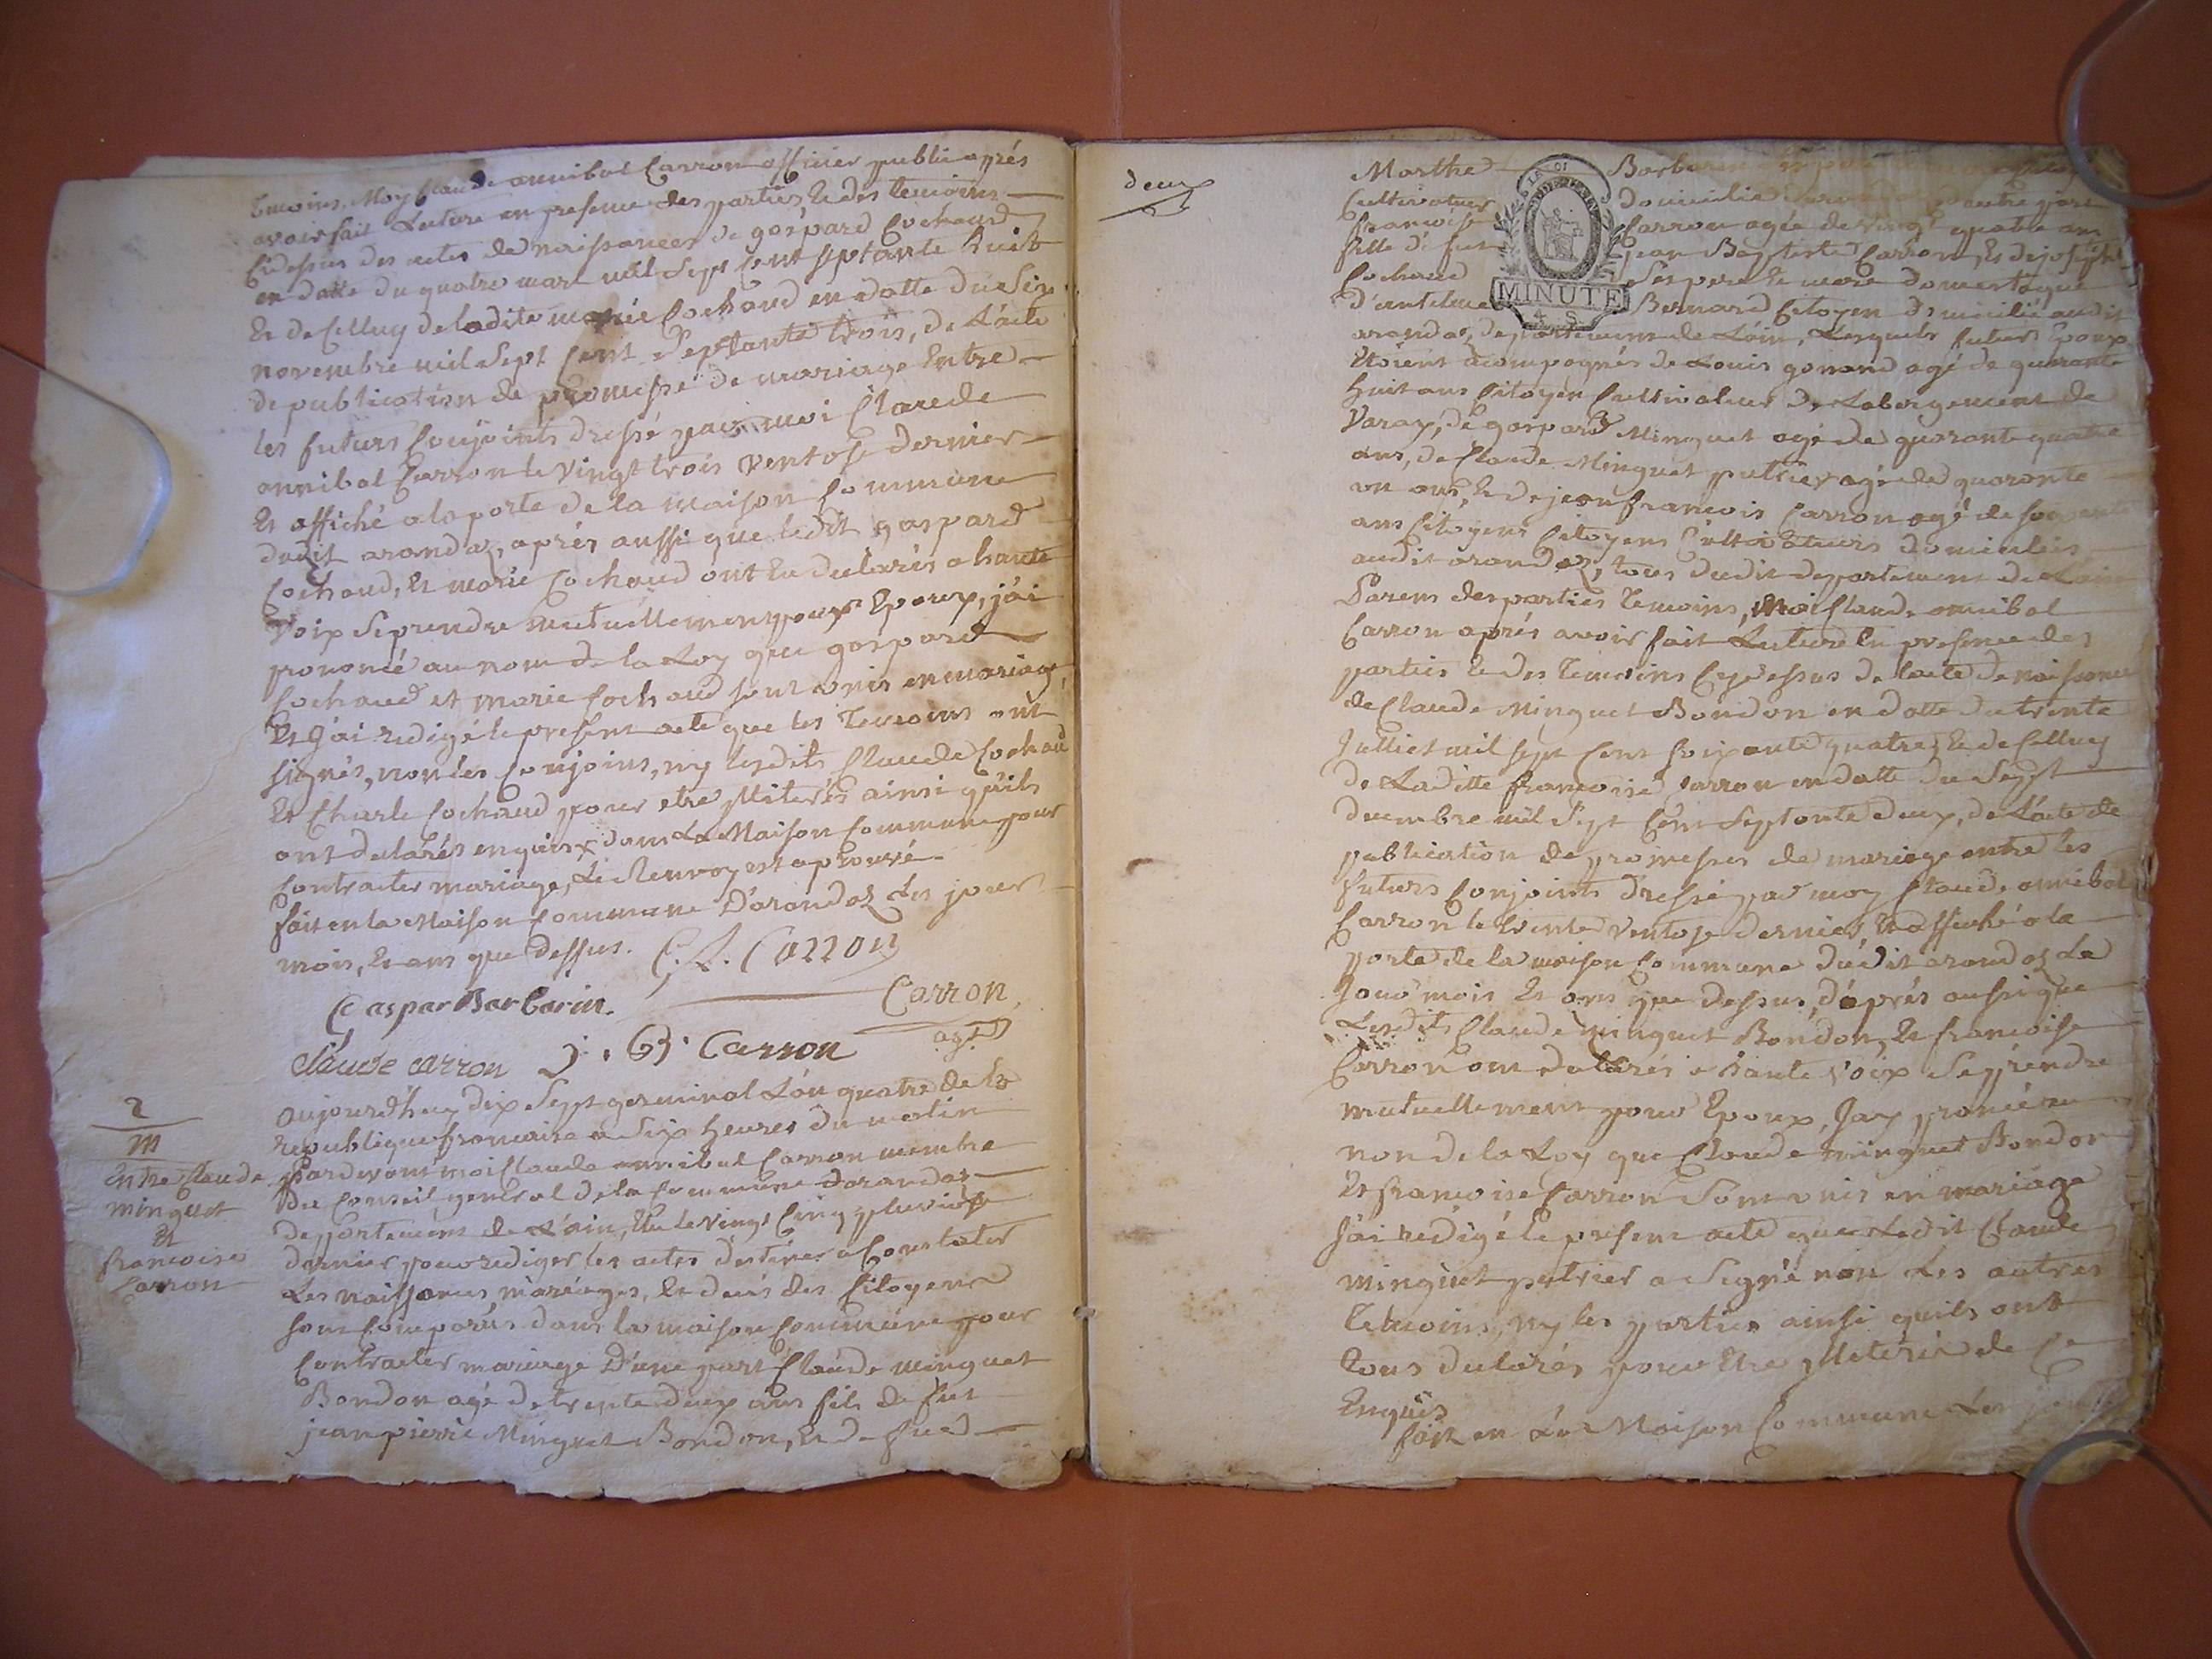 temoins, Moy Claude annibal Carron officier public aprés
avoir fait Lecture en presence des parties, & des temoins
Cidessus des actes de naissances de gaspard Cochaud
en datte du quatre mar mil Sept Cent septante huit
Et de Celluy de ladite marie Cochaud en datte du Six
novembre mil Sept Cent Septante trois, de L'acte
de publication de promesse de mariage Entre
les futurs Conjoints dressé par moi Claude
annibal Carron le vingt trois ventose dernier
Et affiché a la porte de la maison Commune
dudit arandaz, aprés aussi que ledit gaspard
Cochaud, Et marie Cochaud ont Eu declarés a haute
voix se prendre mutuellement pour Epoux, j'ai
prononcé au nom de la Loy que gaspard
Cochaud et marie Cochaud sont unis en mariage,
Et j'ai redigé le present acte que les Temoins ont
signés, non les Conjoins, ny lesdits Claude Cochaud
Et Charle Cochaud pour etre illiterés ainsi quils
ont declarés enquis x dans La Maison Commune pour
Contracter mariage, Le Renvoy est aprouvé.
fait en la Maison Commune D'arandaz Les jour
mois, Et ans que dessus. C. A. Carron
Gaspar Barbarin. Carron
agt
Claude carron J. B. Carron
2
m
Entre Claude
minguet
Et
francoise
Carron
aujourdhuy dix Sept germinal L'an quatre de la
republique francaise a Six heures du matin
Pardevant moi Claude annibal Carron membre
Du Conseil general de la Commune Darandaz
departement de L'ain, Elu le vingt Cinq pluviose
dernier pour rediger les actes destinés a Constater
Les naissances, mariages, Et deces des Citoyens
sont Comparus dans la maison Commune pour
Contracter mariage D'une part Claude minguet
Bondon agé de trente deux ans fils de fut
jean pierre Minguet Bondon, Et de fue
deux
LA LOI
MINUTE
4 S
Marthe Barbarin
Cultivateur domicilié autre part
francoise Carron agée de vingt quatre ans
fille de fut jean Baptiste Carron, Et de josephte
Cochaud Ses pere Et mere domestique
d'anthelme Bernard Citoyen domicilié audit
arandaz, departement de L'ain, Lesquels futurs Epoux
Etoient acompagnés de Louis gonand agé de quarante
huit ans Citoyen Cultivateur de Labergement de
Varay, de gaspard Minguet agé de quarante quatre
ans, de Claude Minguet putrier agé de quarante
un ans, Et de jean francois Carron agé de soixante
ans Citoyens Citoyens Cultivateurs domiciliés
audit arandaz, tous dudit departement de Lain
Parens des parties Temoins, Moi Claude annibal
Carron aprés avoir fait Lecture En presence des
parties Et des Temoins Cy dessus de lacte de naissance
de Claude Minguet Bondon en datte du trente
Julliet mil sept Cent soixante quatre, Et de Celluy
de Laditte francoise Carron en datte du Sept
decembre mil Sept Cent Septante deux, de L'acte de
publication de promesses de mariage entre les
futurs Conjoints dressé par moy Claude annibal
Carron le trente ventose dernier, Et affiché a la
porte de la maison Commune dudit arandaz Le
Jour mois Et ans que dessus, d'aprés aussi que
Lesdits Claude Minguet Bondon, Et francoise
Carron ont declarés a haute voix Se prendre
mutuellement pour Epoux, Jay pronécé au
non de la Loy que Claude minguet Bondon
Et francoise Carron Sont unis en mariage
J'ai redigé le present acte que Ledit Claude
minguet putrier a Signé non Les autres
Temoins, ny les parties ainsi quils ont
tous declarés pour Etre illeterés de Ce
Enquis
fait en La Maison Commune Les jour